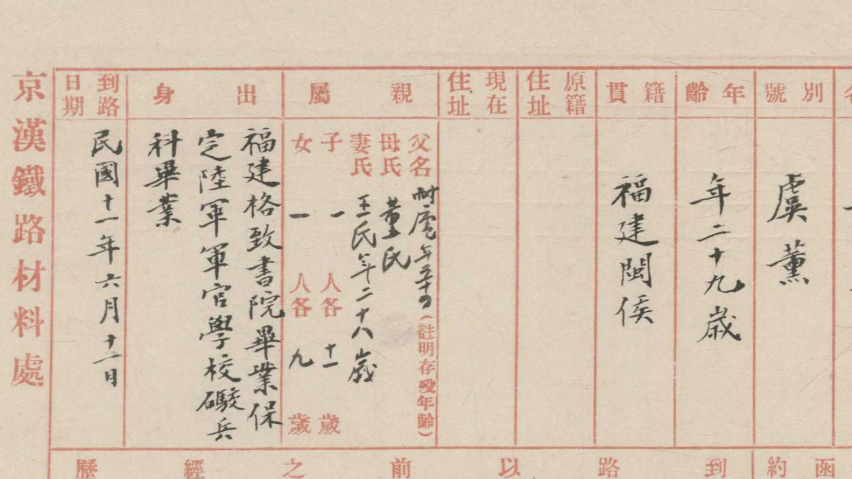 名
別號
虞薰
年齡
年二十九歲
籍貫
福建閩侯
原籍住址
現在住址
親屬
父名
年五十四
(註明存歿年齡)
母氏
董氏
妻氏
王氏年二十八歲
子 一 人各 十一 歲
女 一 人各 九 歲
出身
福建格致書院畢業保
定陸軍軍官學校礮兵
科畢業
到路日期
民國十一年六月十二日
京漢鐵路材料處
函約
到路以前之經歷